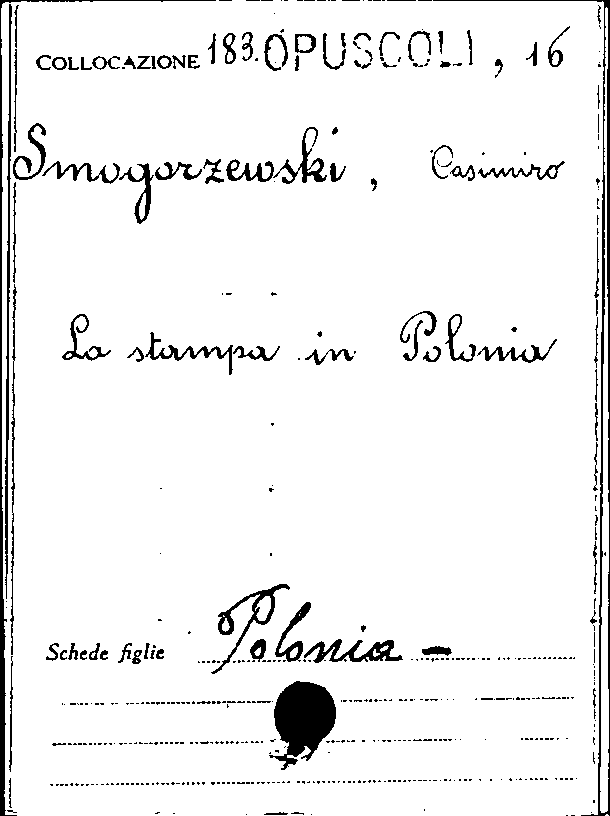 COLLOCAZIONE 183.OPUSCOLI, 16
Smogorzewski, Casimiro
La stampa in Polonia
Schede figlie Polonia -